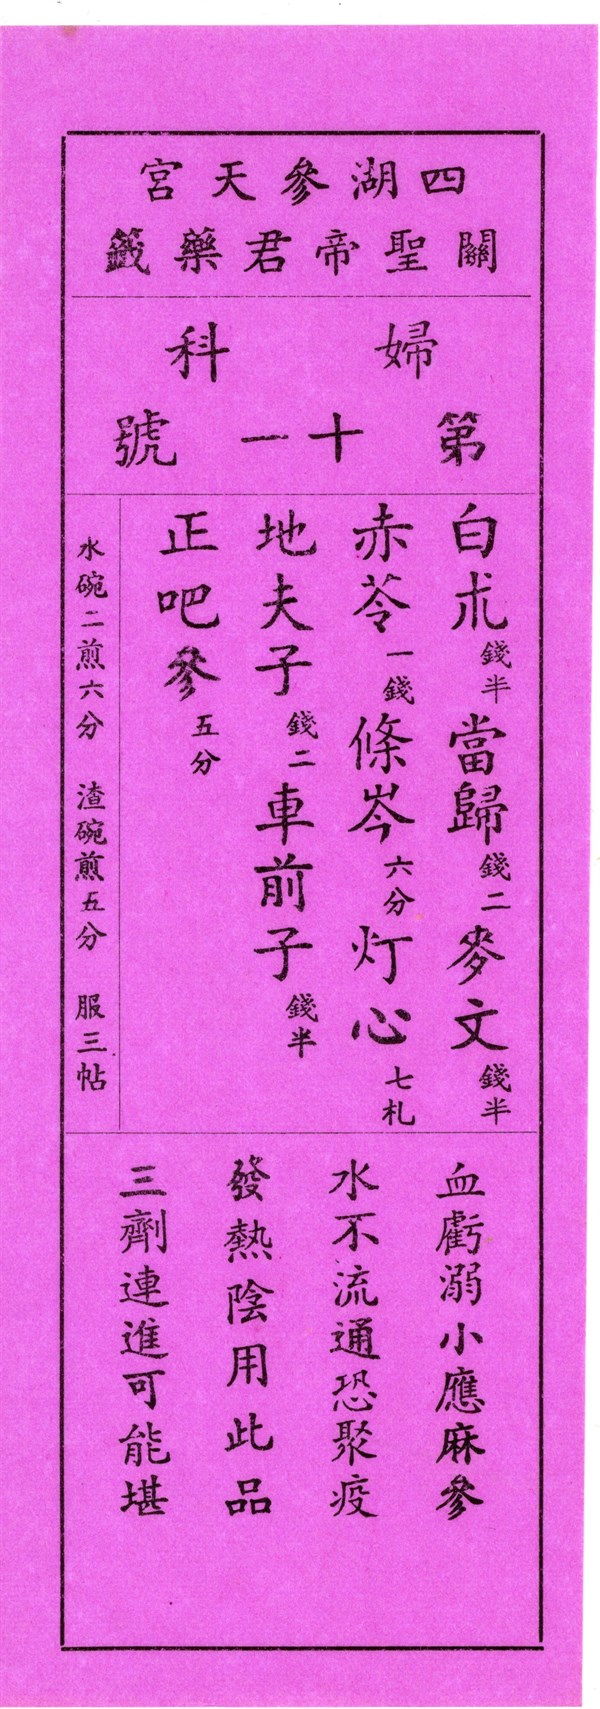 四湖參天宮
關聖帝君藥籤
婦科
第十一號
白朮錢半當歸錢二麥文錢半
赤苓一錢條岑六分灯心七札
地夫子錢二車前子錢半
正吧參五分
水碗二煎六分　渣碗煎五分　服三帖
血虧溺小應麻參
水不流通恐聚疫
發熱陰用此品
三劑連進可能堪